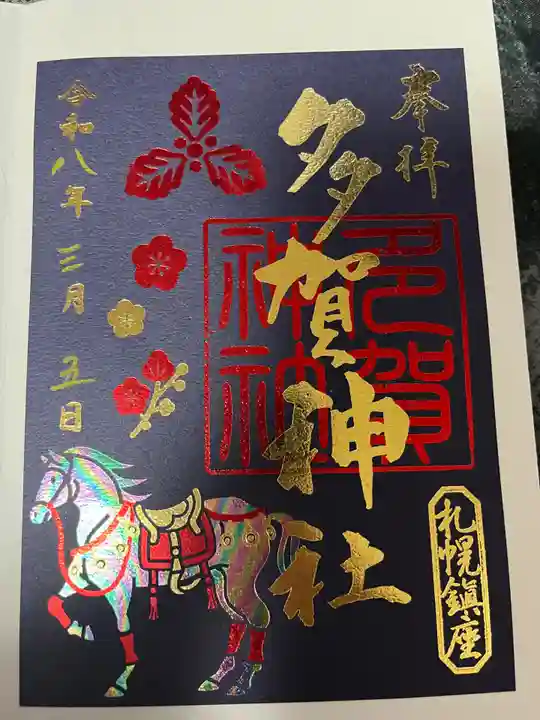 奉拝
多賀神社
多賀
神社
札幌鎮座
令和八年三月五日